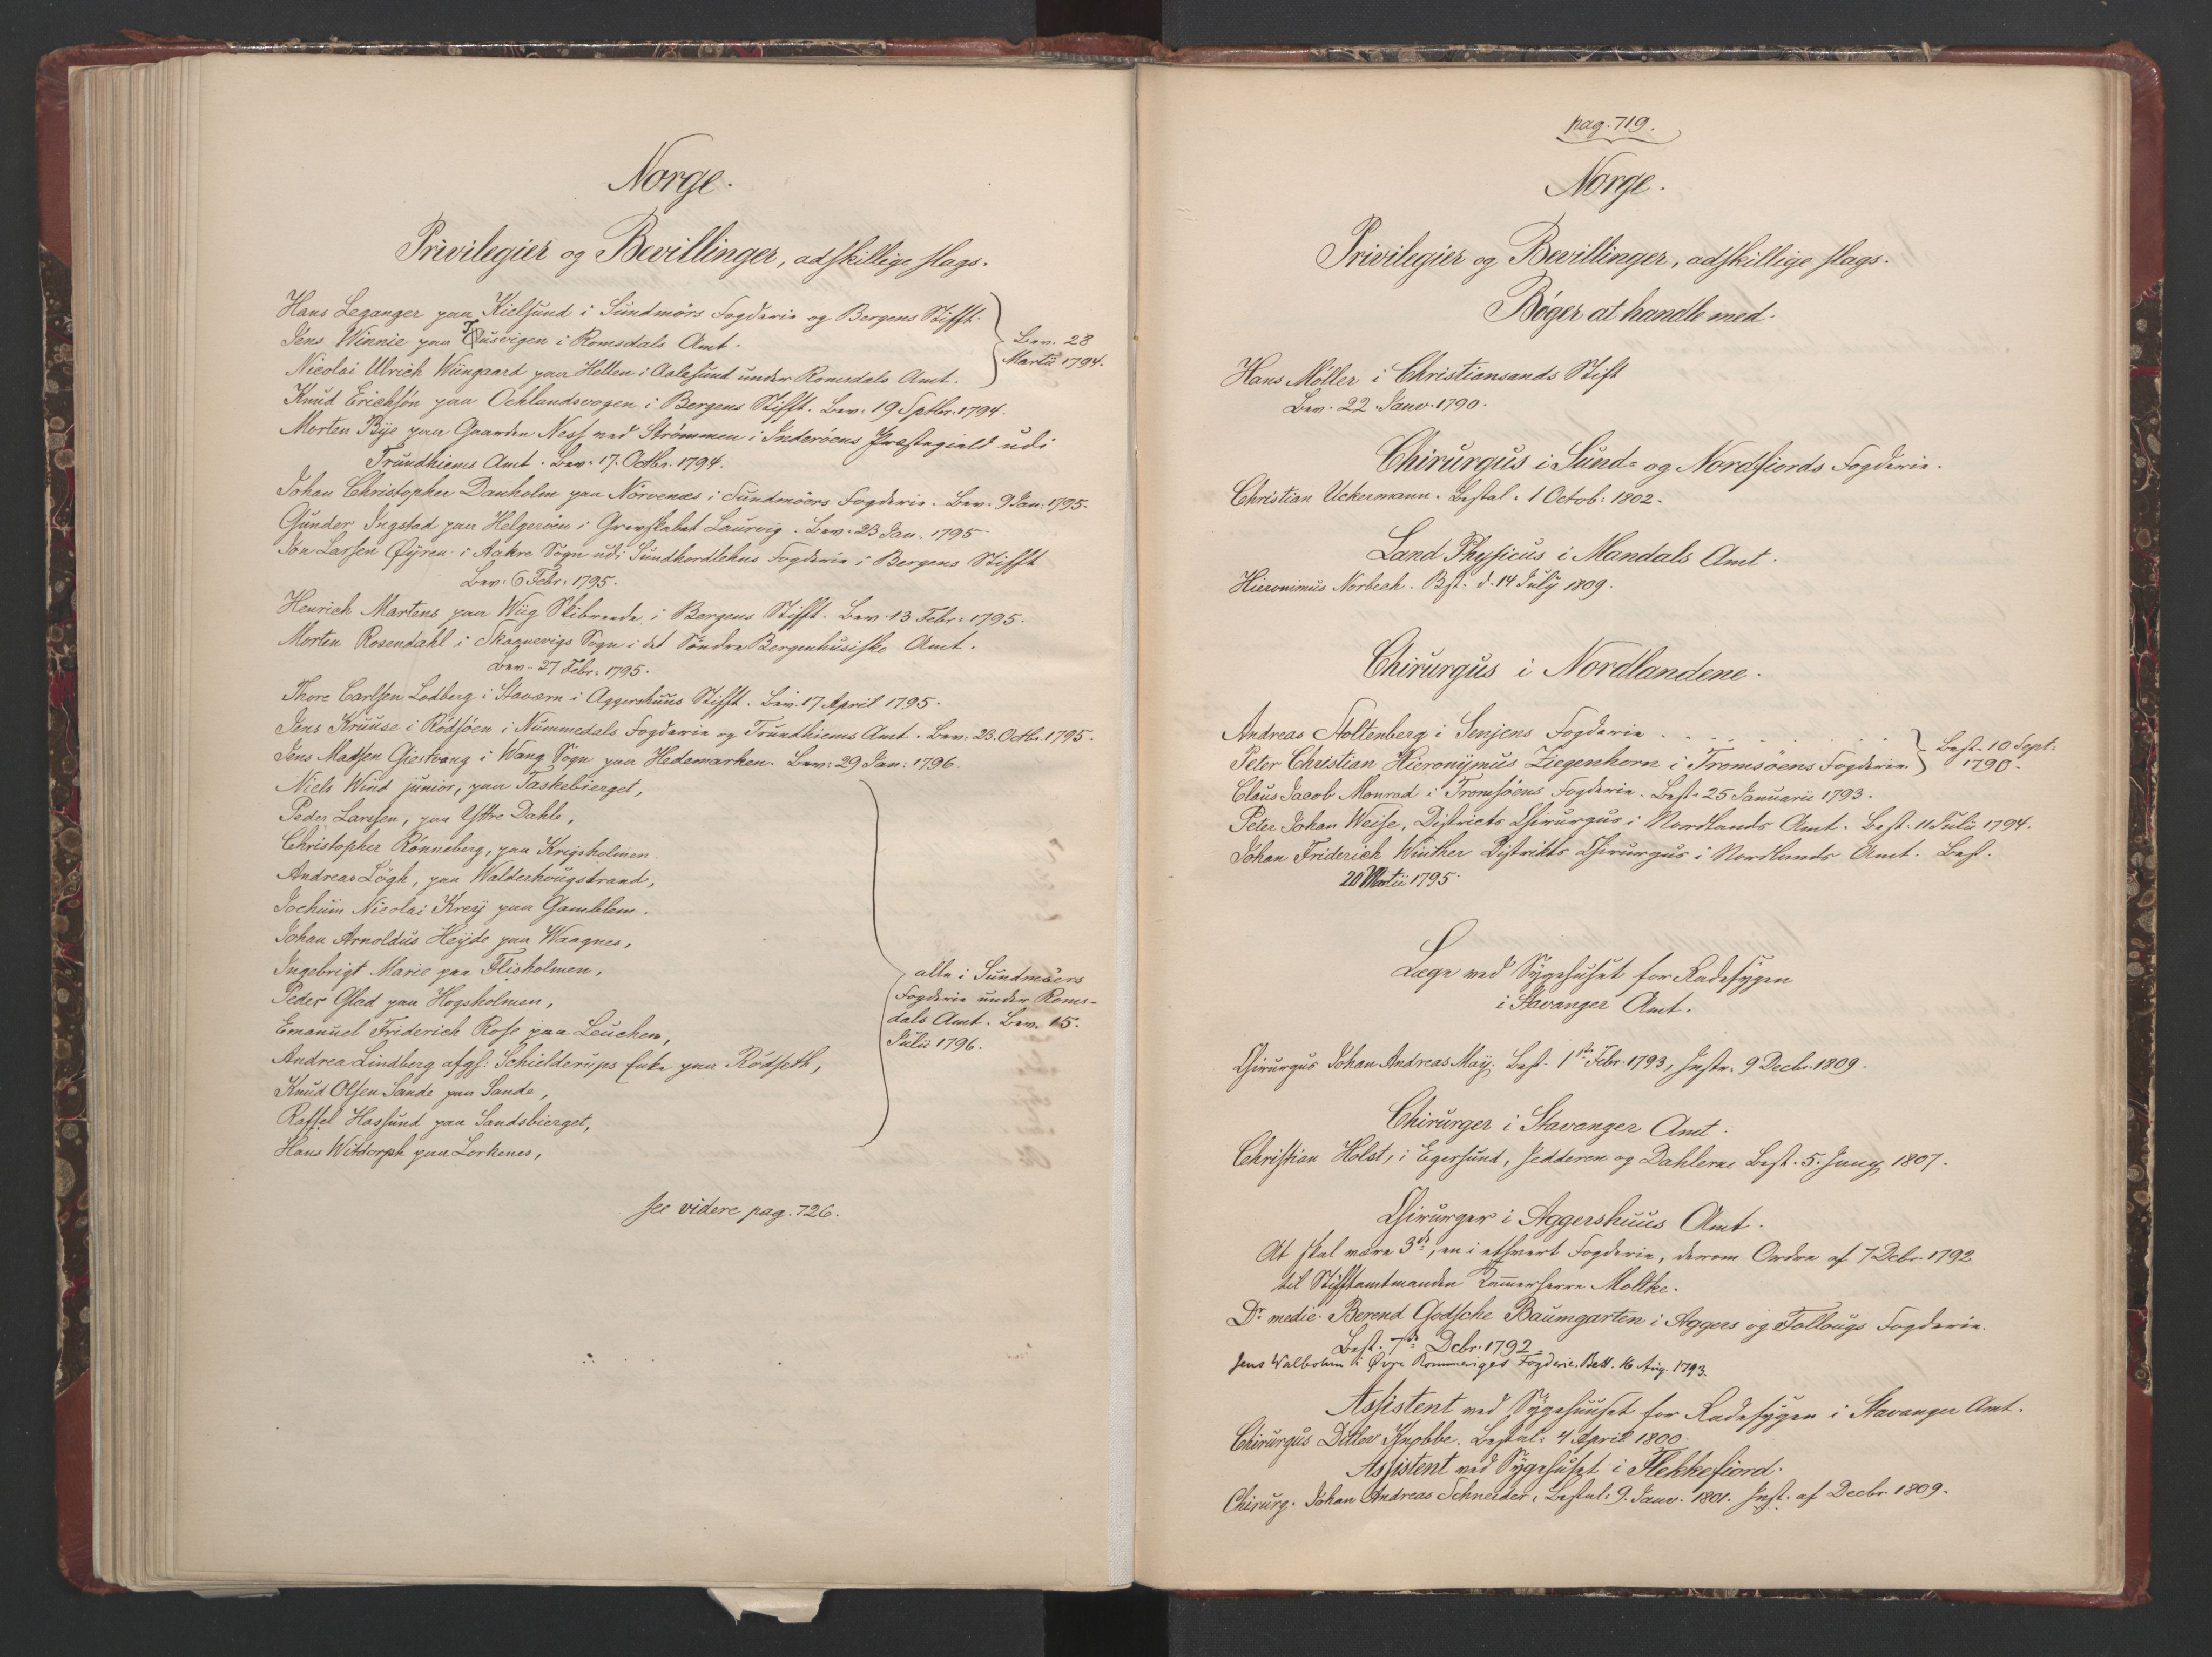 Norge.
Privilegier og Bevillinger, adskillige slags.
Hans Leganger paa Kielsund i Sundmörs Fogderie og Bergens Stifft.
Jens Winnie paa Tusvigen i Romsdals Amt.
Nicolai Ulrich Wiingaard paa Hellen i Aalesund under Romsdals Amt.
Bev. 28
Martii 1794.
Knud Erichsön paa Ochlandsvogen i Bergens Stifft. Bev. 19 Septbr. 1794.
Morten Bÿe paa Gaarden Ness ved Strömmen i Inderöens Præstegield udi
Trundhiems Amt. Bev. 17. Octbr. 1794.
Johan Christopher Danholm paa Nörvenæs i Sundmöers Fogderie. Bev. 9 Jan: 1795.
Gunder Ingstad paa Helgeröen i Grevskabet Laurvig. Bev. 23 Jan. 1795
Jon Larsen Øÿren i Aakre Sogn udi Sundhordlehns Fogderie i Bergens Stifft
Bev: 6 Febr: 1795.
Henrich Martens paa Wiig Skibrede i Bergens Stifft. Bev. 13 Febr: 1795.
Morten Rosendahl i Skagnevigs Sogn i det Söndre Bergenhusiske Amt.
Bev. 27 Febr: 1795.
Thore Carlsen Lodberg i Staværn i Aggershuus Stifft. Bev. 17 April 1795.
Jens Kruuse i Rödsöen i Nummedals Fogderie og Trundhiems Amt. Bev: 23. Octbr. 1795.
Jens Madsen Giestvang i Wang Sogn paa Hedemarken. Bev: 29 Jan: 1796.
Niels Wind junior, paa Taskebierget,
Peder Larssen, paa Yttre Dahle,
Christopher Rönneberg, paa Krigsholmen.
Andreas Lögh, paa Walderhougstrand,
Jochum Nicolai Kreÿ paa Gamblem.
Johan Arnoldus Heÿde paa Waagnes,
Ingebrigt Marie paa Flisholmen,
Peder Glad paa Hogsholmen,
Emanuel Friderich Rose paa Leuchen,
Andrea Lindberg afgl: Schielderups Enke paa Rödseth,
Knud Olsen Sande paa Sande,
Raffel Hassund paa Sandsbierget,
Hans Witdorph paa Lorkenes,
alle i Sundmöers
Fogderie under Roms-
dals Amt. Bev. 15.
Julii 1796.
see videre pag. 726.
pag. 719.
Norge.
Privilegier og Bevillinger, adskillige slags.
Böger at handle med.
Hans Möller i Christiansands Stift
Bev. 22 Janv. 1790.
Chirurgus i Sund= og Nordfiords Fogderie.
Christian Uckermann. Bestal. 1 Octob: 1802.
Land Physicus i Mandals Amt.
Hieronimus Norbech. Bst. d. 14 Julÿ 1809.
Chirurgus i Nordlandene.
Andreas Stoltenberg i Senjens Fogderie
Peter Christian Hieronÿmus Ziegenhorn i Tromsöens Fogderie.
Best. 10 Sept:
1790.
Claus Jacob Monrad i Tromsöens Fogderie. Best. 25 Januarii 1793.
Peter Johan Weise, Districts Chirurgus i Nordlands Amt. Best. 11 Julii 1794.
Johan Friderich Winther Distrikts Chirurgus i Nordlands Amt. Best.
20 Martii 1795.
Læge ved Sÿgehuset for Radesygen
i Stavanger Amt.
Chirurgus Johan Andreas Maÿ. Best. 1ste Febr. 1793, Instr. 9 Decbr. 1809.
Chirurger i Stavanger Amt.
Christian Holst, i Egersund, Jedderen og Dahlerne Best. 5. Juny 1807.
Chirurger i Aggershuus Amt.
At skal være 3de, en i ethvert Fogderie, derom Ordre af 7 Debr. 1792
til Stifftamtmanden Kammerherre Moltke.
Dr medic. Berend Godsche Baumgarten i Aggers og Follougs Fogderie.
Best. 7de Debr. 1792.
Jens Walbohm i Øvre Rommeriges Fogderie. Best. 16 Aug. 1793.
Assistent ved Sÿgehuuset for Radesygen i Stavanger Amt.
Chirurgus Ditlev Knobbe. Bestal. 4 April 1800.
Assistent ved Sÿgehuset i Flekkefiord.
Chirurg. Johan Andreas Schneider. Bestal. 9. Janv. 1801. Inst. af Decbr. 1809.